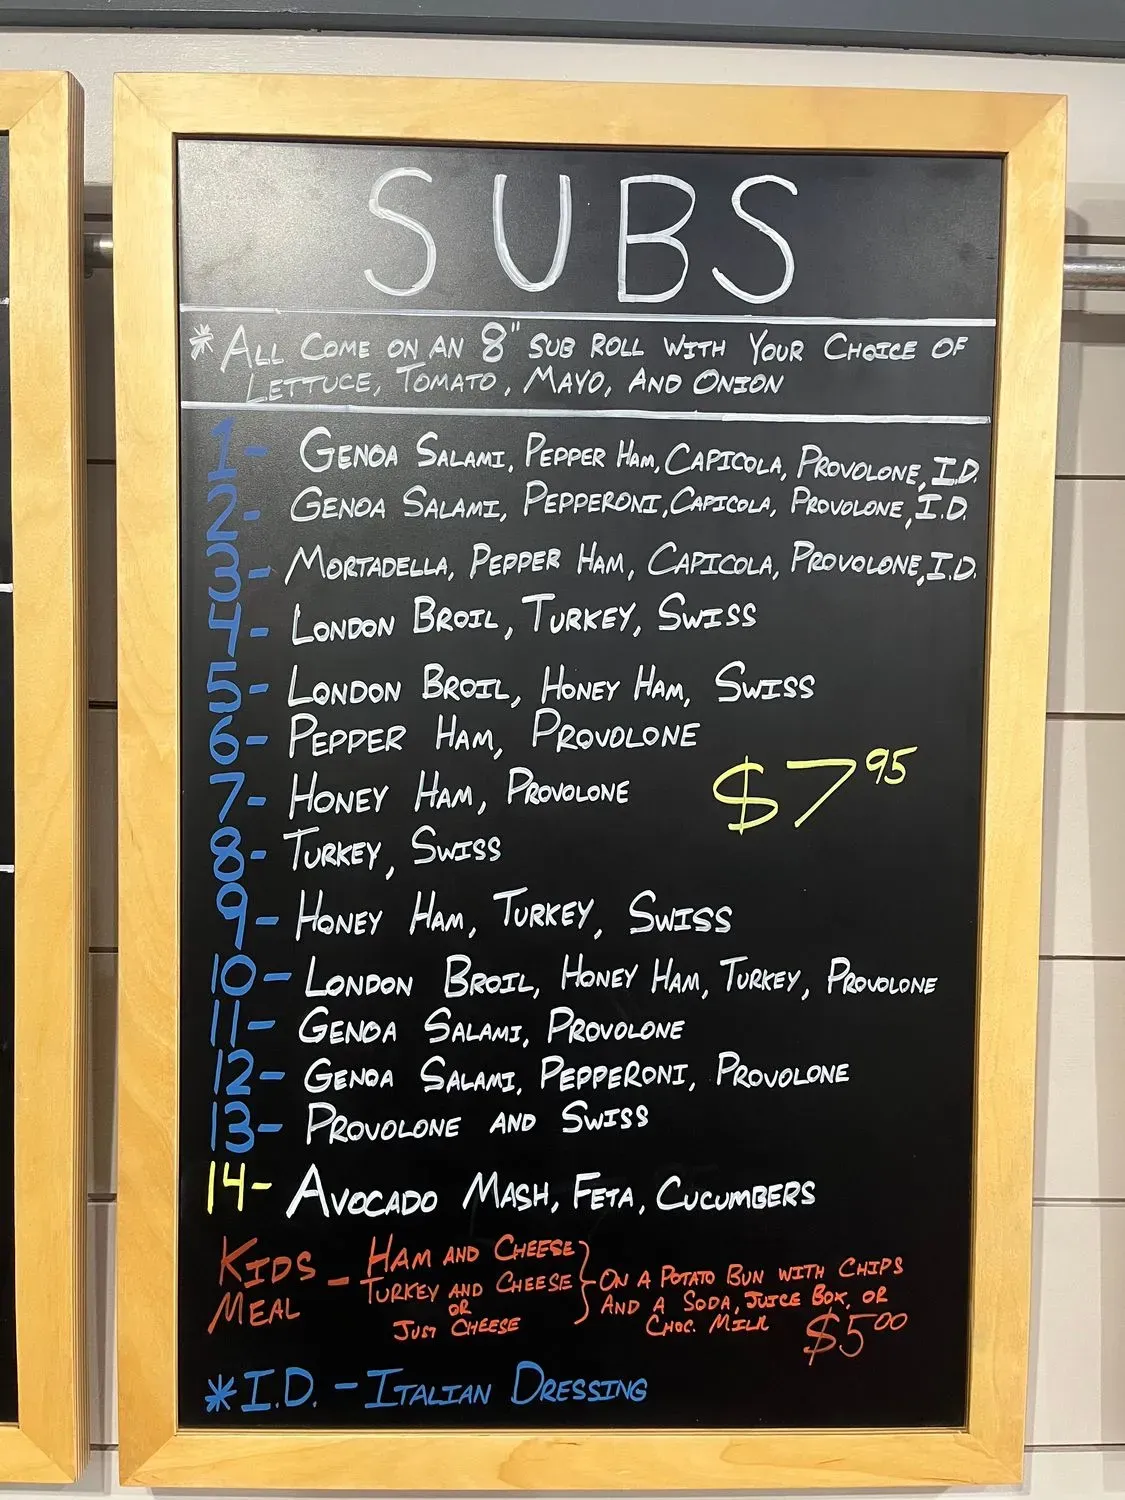 SUBS
* ALL COME ON AN 8" SUB ROLL WITH YOUR CHOICE OF
LETTUCE, TOMATO, MAYO, AND ONION
1- GENOA SALAMI, PEPPER HAM, CAPICOLA, PROVOLONE, I.D.
2- GENOA SALAMI, PEPPERONI, CAPICOLA, PROVOLONE, I.D.
3- MORTADELLA, PEPPER HAM, CAPICOLA, PROVOLONE, I.D.
4- LONDON BROIL, TURKEY, SWISS
5- LONDON BROIL, HONEY HAM, SWISS
6- PEPPER HAM, PROVOLONE
7- HONEY HAM, PROVOLONE
$7 95
8- TURKEY, SWISS
9- HONEY HAM, TURKEY, SWISS
10- LONDON BROIL, HONEY HAM, TURKEY, PROVOLONE
11- GENOA SALAMI, PROVOLONE
12- GENOA SALAMI, PEPPERONI, PROVOLONE
13- PROVOLONE AND SWISS
14- AVOCADO MASH, FETA, CUCUMBERS
KIDS MEAL -
HAM AND CHEESE
TURKEY AND CHEESE
OR
JUST CHEESE
ON A POTATO BUN WITH CHIPS
AND A SODA, JUICE BOX, OR
CHOC. MILK $5 00
*I.D. - ITALIAN DRESSING